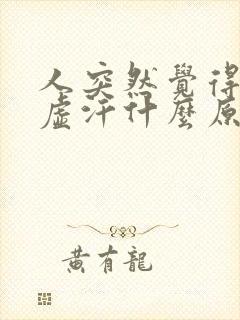 人突然覺得
虛汗什麼原
黃有龍